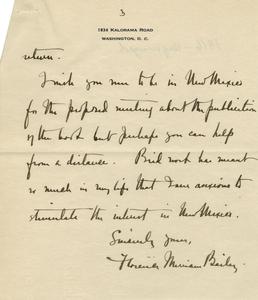 3
1834 KALORAMA ROAD
WASHINGTON, D. C.
return.
I wish you were to be in New Mexico
for the proposed meeting about the publication
of the book but perhaps you can help
from a distance. Bird work has meant
so much in my life that I am anxious to
stimulate the interest in New Mexico.
Sincerely yours,
Florence Merriam Bailey